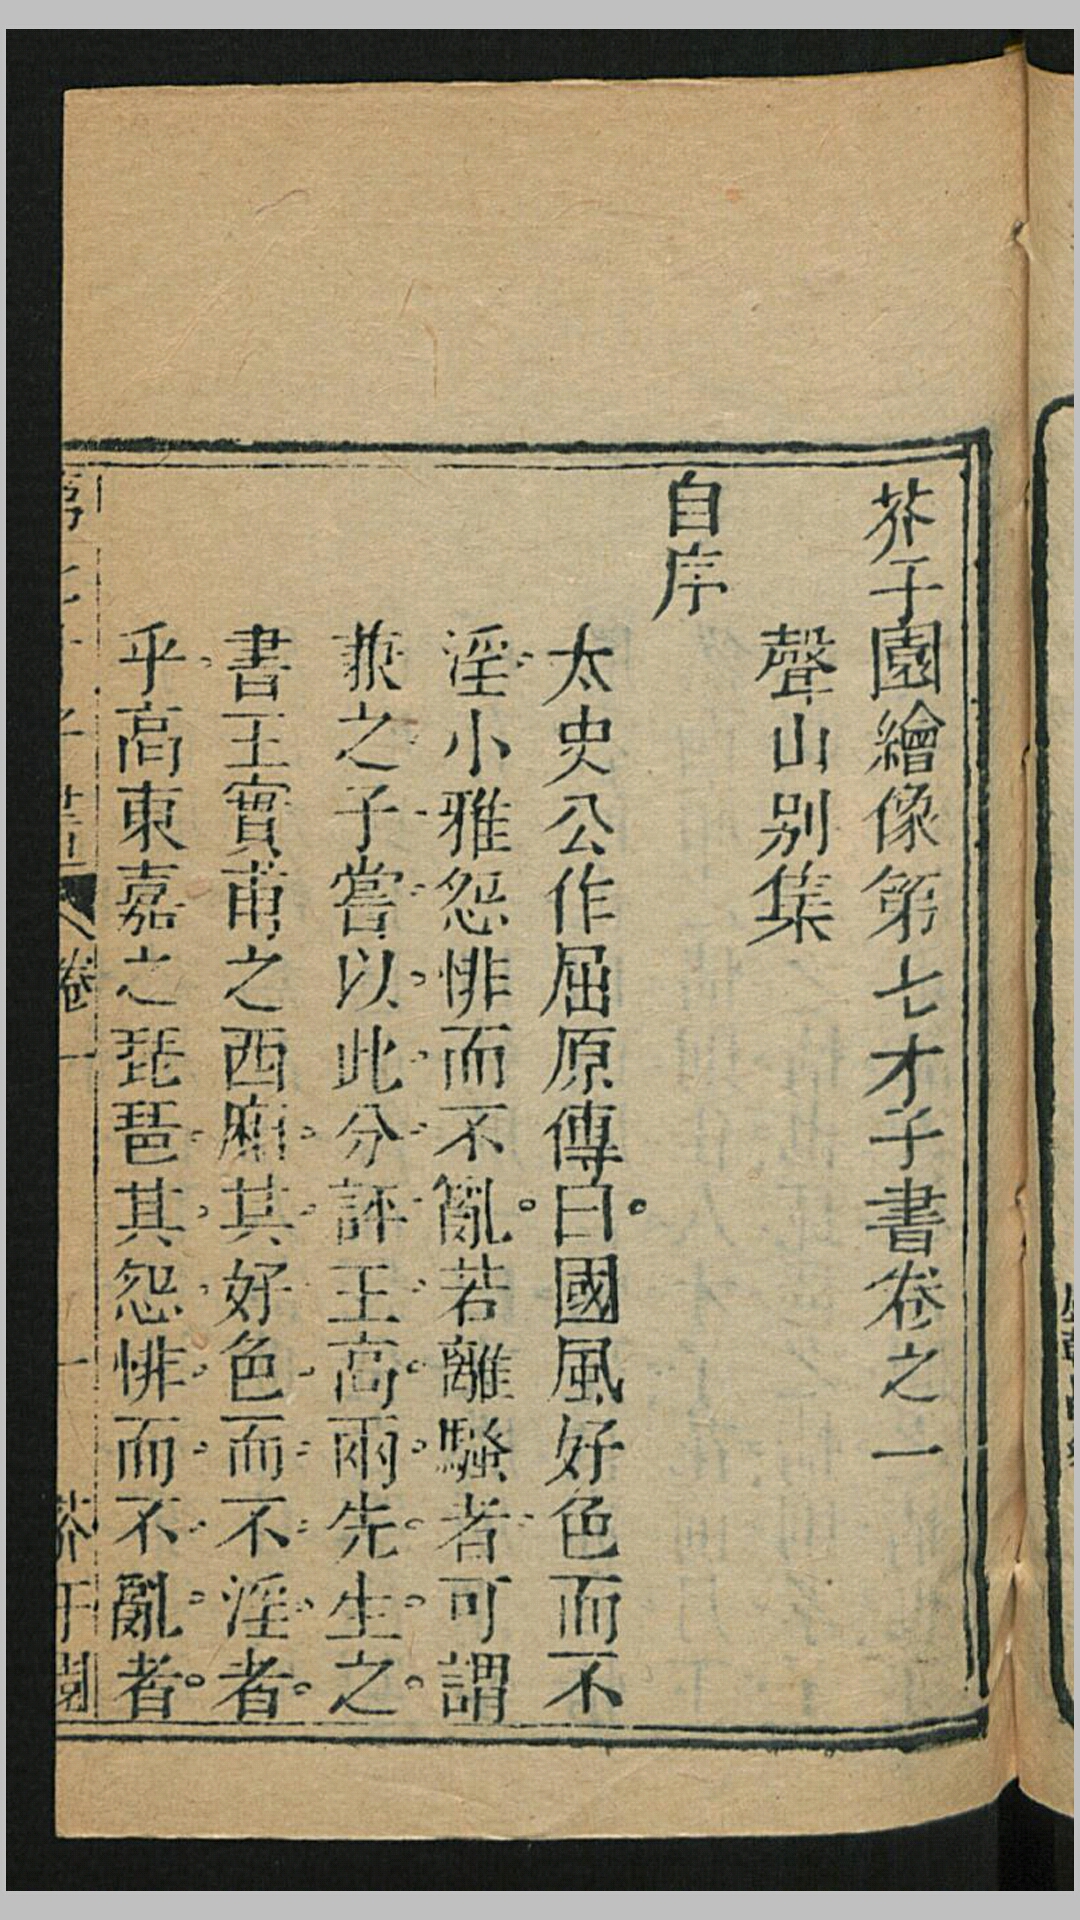 芥子園繪像第七才子書卷之一
聲山别集
自序
太史公作屈原傳曰國風好色而不
淫小雅怨悱而不亂若離騷者可謂
兼之子嘗以此分評王高兩先生之
書王實甫之西廂其好色而不淫者
乎高東嘉之琵琶其怨悱而不亂者
卷一
一
芥子園